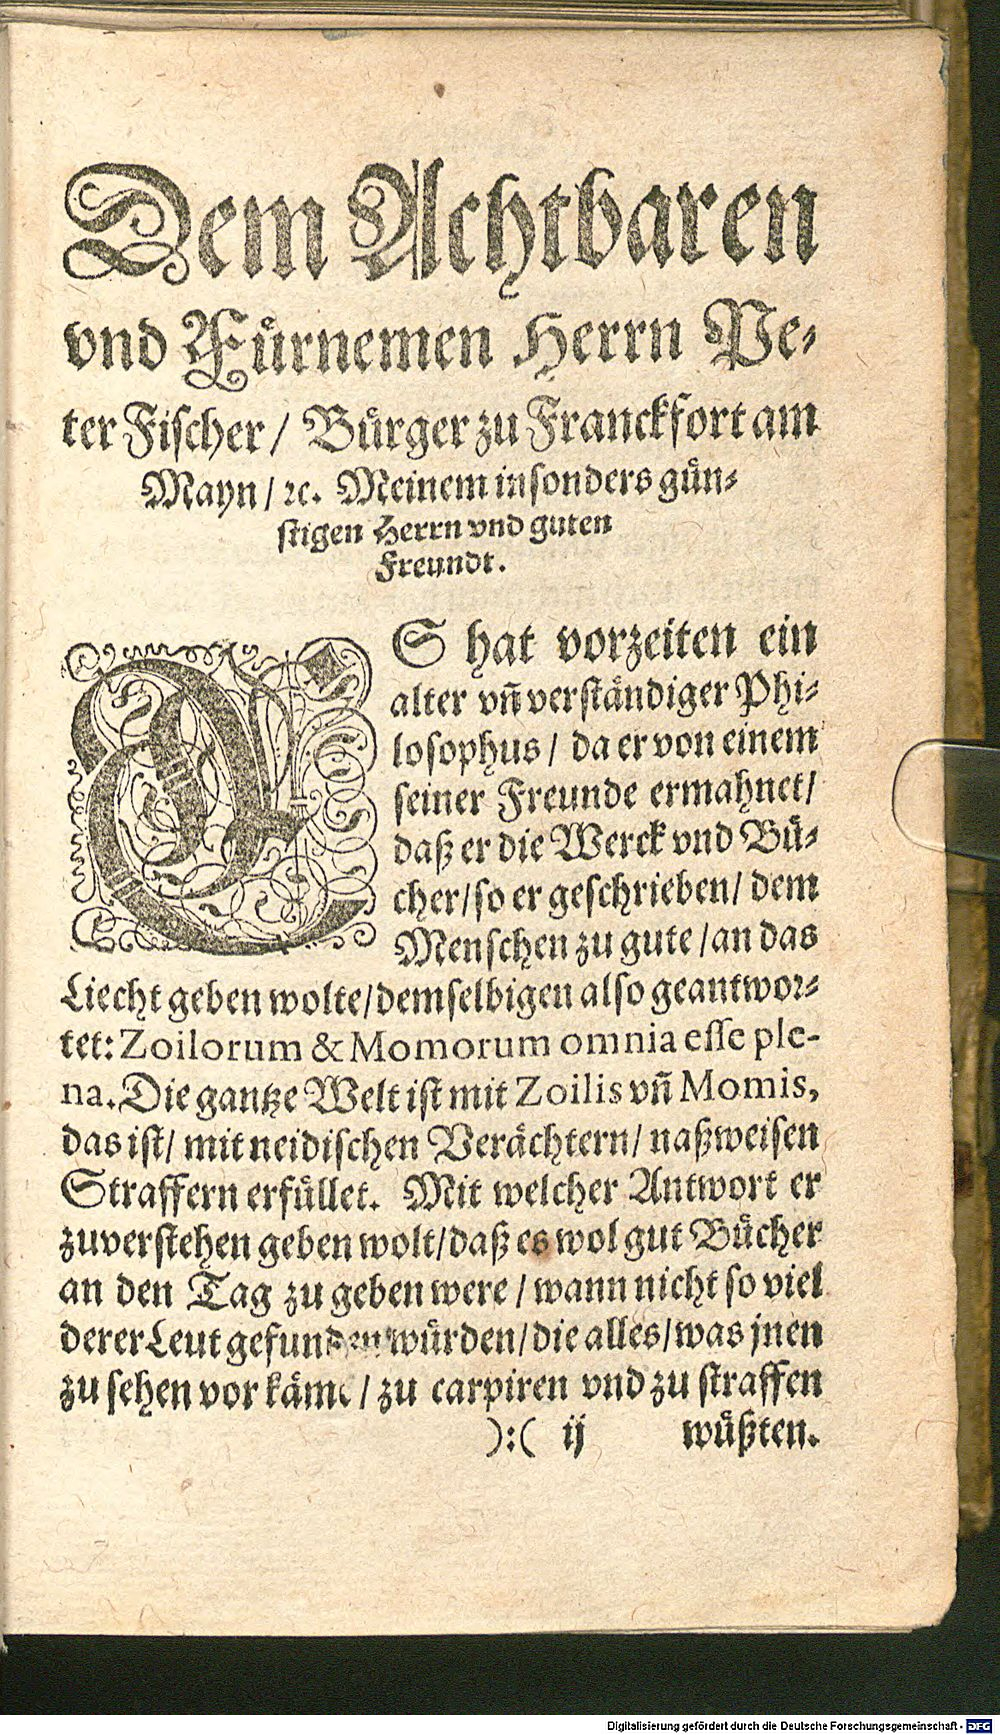 Dem Achtbaren
vnd Fürnemen Herrn Pe-
ter Fischer / Bürger zu Franckfort am
Mayn / ꝛc. Meinem insonders gün-
stigen Herrn vnd guten
Freundt.
ES hat vorzeiten ein
alter vñ verständiger Phi-
losophus / da er von einem
seiner Freunde ermahnet /
daß er die Werck vnd Bü-
cher / so er geschrieben / dem
Menschen zu gute / an das
Liecht geben wolte / demselbigen also geantwor-
tet: Zoilorum & Momorum omnia esse ple-
na. Die gantze Welt ist mit Zoilis vñ Momis,
das ist / mit neidischen Verächtern / naßweisen
Straffern erfüllet. Mit welcher Antwort er
zuverstehen geben wolt / daß es wol gut Bücher
an den Tag zu geben were / wann nicht so viel
derer Leut gefunden würden / die alles / was jnen
zu sehen vor käme / zu carpiren vnd zu straffen
):( ij wüßten.
Digitalisierung gefördert durch die Deutsche Forschungsgemeinschaft - DFG